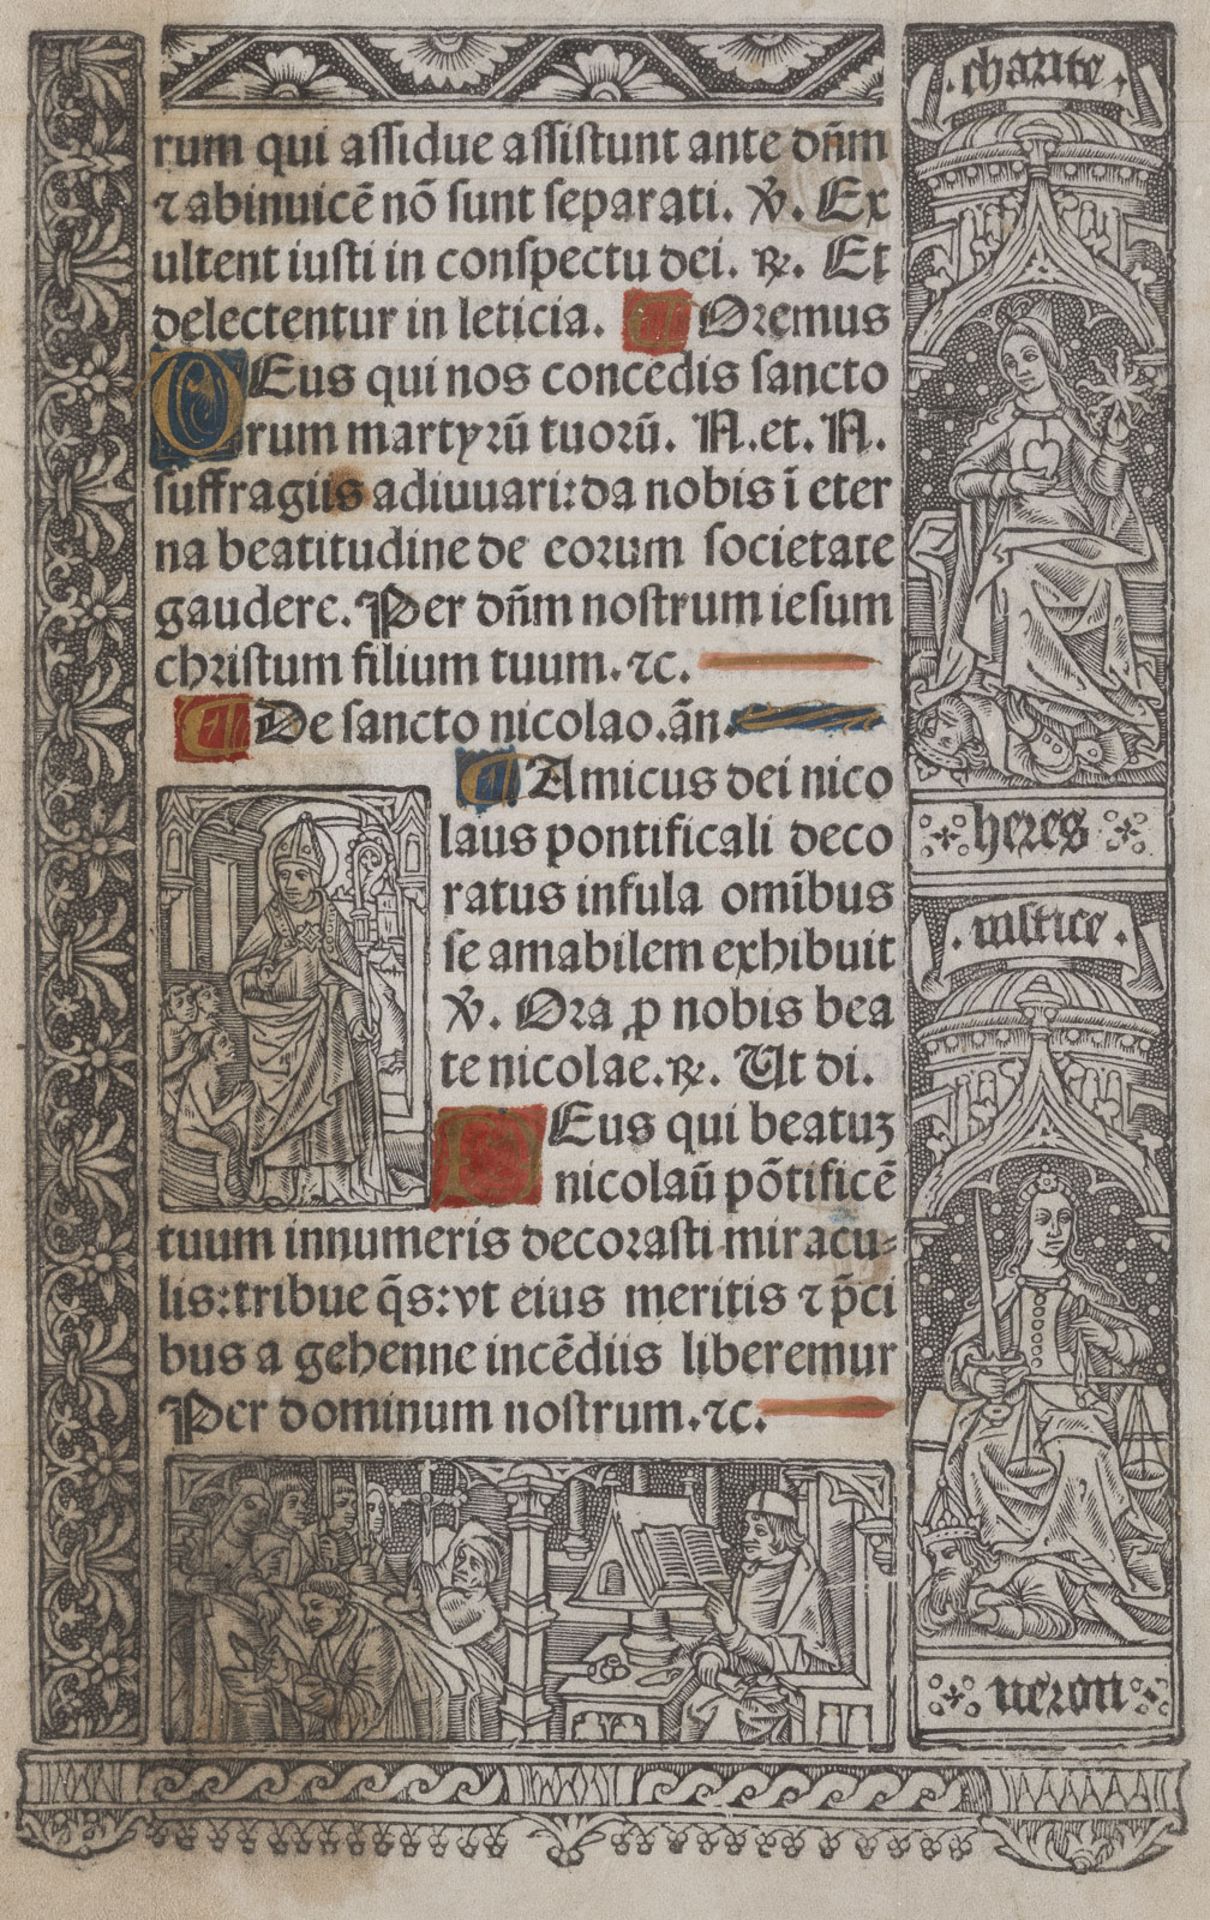 rum qui aſſidue aſſiſtunt ante dn̄m
⁊ abinuicē nō ſunt ſeparati. ℣. Ex
ultent iuſti in conſpectu dei. ℟. Et
delectentur in leticia. ¶ Oremus
DEus qui nos concedis ſancto
rum martyrū tuorū. N.et. N.
ſuffragiis adiuuari: da nobis ī eter
na beatitudine de eorum ſocietate
gaudere. Per dn̄m noſtrum ieſum
chriſtum filium tuum. ⁊c.
¶ De ſancto nicolao. añ.
¶ Amicus dei nico
laus pontificali deco
ratus infula omībus
ſe amabilem exhibuit
℣. Ora ꝓ nobis bea
te nicolae. ℟. Ut di.
DEus qui beatuꝫ
nicolaū pōtificē
tuum innumeris decoraſti miracu⸗
lis: tribue q̄s: vt eius meritis ⁊ p̄ci
bus a gehenne incēdiis liberemur
Per dominum noſtrum. ⁊c.
. charite .
heres
. iuſtice .
neron